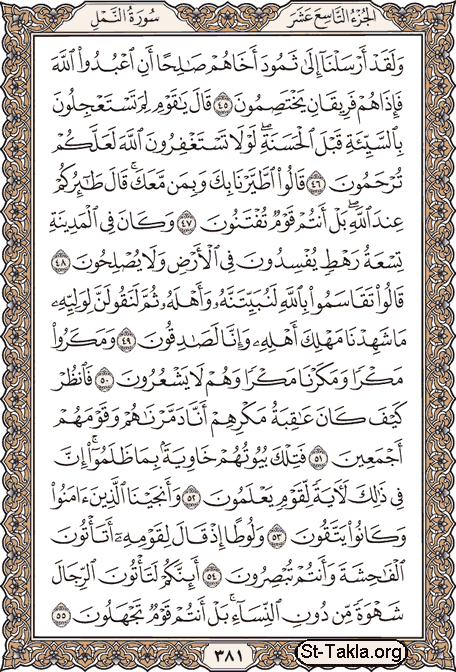 الجزء التاسع عشر
سورة النمل
وَلَقَدْ أَرْسَلْنَآ إِلَىٰ ثَمُودَ أَخَاهُمْ صَٰلِحًا أَنِ ٱعْبُدُوا۟ ٱللَّهَ
فَإِذَا هُمْ فَرِيقَانِ يَخْتَصِمُونَ ٤٥ قَالَ يَٰقَوْمِ لِمَ تَسْتَعْجِلُونَ
بِٱلسَّيِّئَةِ قَبْلَ ٱلْحَسَنَةِ ۖ لَوْلَا تَسْتَغْفِرُونَ ٱللَّهَ لَعَلَّكُمْ
تُرْحَمُونَ ٤٦ قَالُوا۟ ٱطَّيَّرْنَا بِكَ وَبِمَن مَّعَكَ ۚ قَالَ طَٰٓئِرُكُمْ
عِندَ ٱللَّهِ ۖ بَلْ أَنتُمْ قَوْمٌ تُفْتَنُونَ ٤٧ وَكَانَ فِى ٱلْمَدِينَةِ
تِسْعَةُ رَهْطٍ يُفْسِدُونَ فِى ٱلْأَرْضِ وَلَا يُصْلِحُونَ ٤٨
قَالُوا۟ تَقَاسَمُوا۟ بِٱللَّهِ لَنُبَيِّتَنَّهُۥ وَأَهْلَهُۥ ثُمَّ لَنَقُولَنَّ لِوَلِيِّهِۦ
مَا شَهِدْنَا مَهْلِكَ أَهْلِهِۦ وَإِنَّا لَصَٰدِقُونَ ٤٩ وَمَكَرُوا۟
مَكْرًا وَمَكَرْنَا مَكْرًا وَهُمْ لَا يَشْعُرُونَ ٥٠ فَٱنظُرْ
كَيْفَ كَانَ عَٰقِبَةُ مَكْرِهِمْ أَنَّا دَمَّرْنَٰهُمْ وَقَوْمَهُمْ
أَجْمَعِينَ ٥١ فَتِلْكَ بُيُوتُهُمْ خَاوِيَةًۢ بِمَا ظَلَمُوٓا۟ ۗ إِنَّ
فِى ذَٰلِكَ لَءَايَةً لِّقَوْمٍ يَعْلَمُونَ ٥٢ وَأَنجَيْنَا ٱلَّذِينَ ءَامَنُوا۟
وَكَانُوا۟ يَتَّقُونَ ٥٣ وَلُوطًا إِذْ قَالَ لِقَوْمِهِۦٓ أَتَأْتُونَ
ٱلْفَٰحِشَةَ وَأَنتُمْ تُبْصِرُونَ ٥٤ أَئِنَّكُمْ لَتَأْتُونَ ٱلرِّجَالَ
شَهْوَةً مِّن دُونِ ٱلنِّسَآءِ ۚ بَلْ أَنتُمْ قَوْمٌ تَجْهَلُونَ ٥٥
٣٨١
St-Takla.org